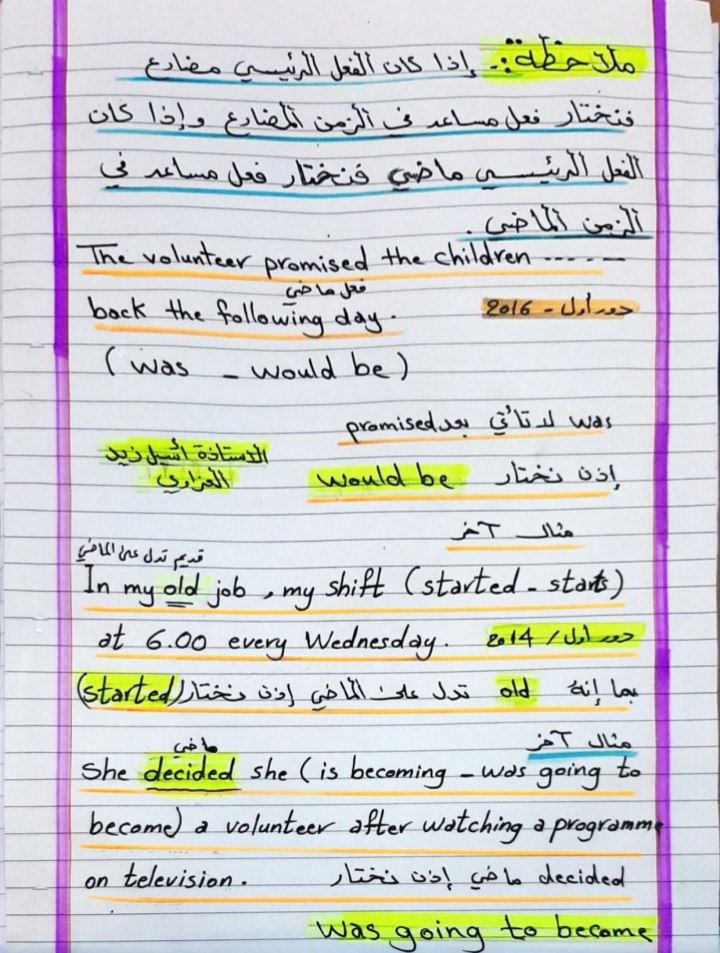 ملاحظة:- إذا كان الفعل الرئيسي مضارع
فنختار فعل مساعد في الزمن المضارع وإذا كان
الفعل الرئيسي ماضي فنختار فعل مساعد في
الزمن الماضي.
The volunteer promised the children ------
فعل ماضي
back the following day. دور أول - 2016
(was - would be)
was لا تأتي بعد promised
الاستاذة أسيل زيد
العزاوي
إذن نختار would be
مثال آخر
قديم تدل على الماضي
In my old job, my shift (started - starts)
at 6.00 every Wednesday. دور أول / 2014
بما إنه old تدل على الماضي إذن نختار (started)
ماضي مثال آخر
She decided she (is becoming - was going to
become) a volunteer after watching a programme
on television. decided ماضي إذن نختار
was going to become